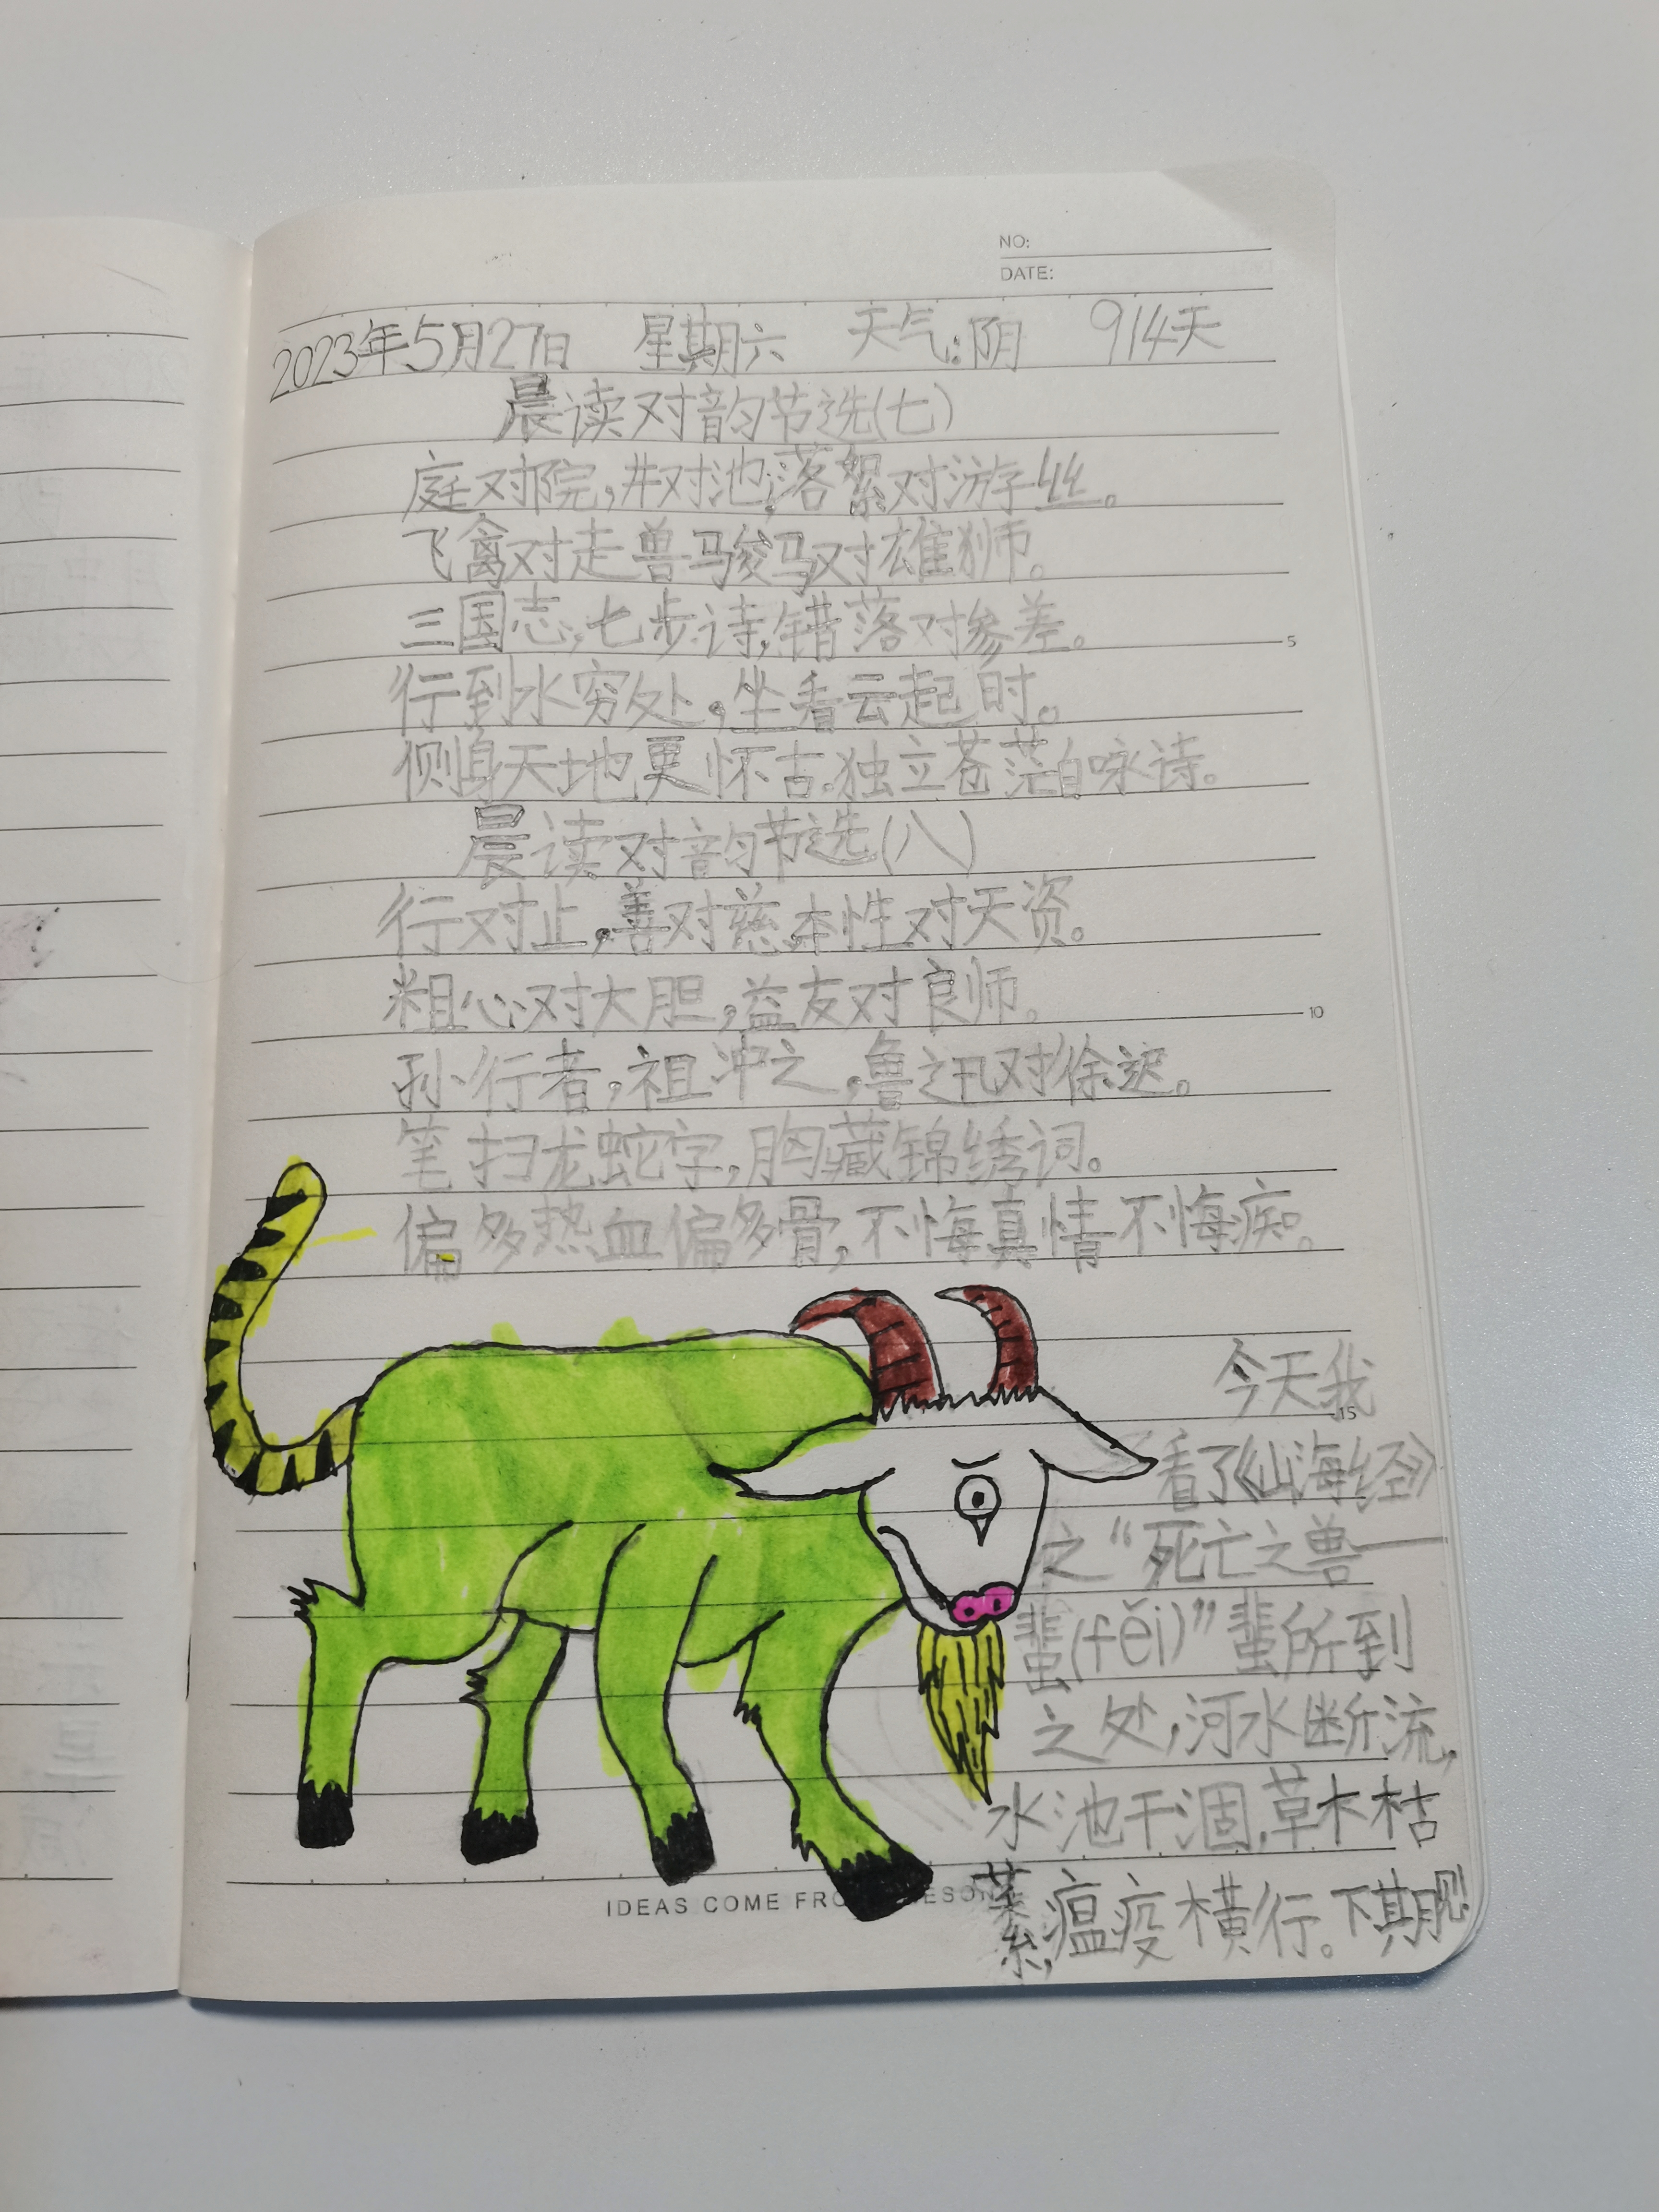 NO:
DATE:
2023年5月27日 星期六 天气:阴 914天
晨读对韵节选(七)
庭对院,井对池,落絮对游丝。
飞禽对走兽,骏马对雄狮。
三国志,七步诗,错落对参差。
行到水穷处,坐看云起时。
侧身天地更怀古,独立苍茫自咏诗。
晨读对韵节选(八)
行对止,善对慈,本性对天资。
粗心对大胆,益友对良师。
孙行者,祖冲之,鲁迅对徐迟。
笔扫龙蛇字,胸藏锦绣词。
偏多热血偏多骨,不悔真情不悔痴。
今天我
看了《山海经》
之“死亡之兽——
蜚(fěi)”蜚所到
之处,河水断流,
水池干涸,草木枯
萦,瘟疫横行。下期见!
5
10
15
IDEAS COME FRO